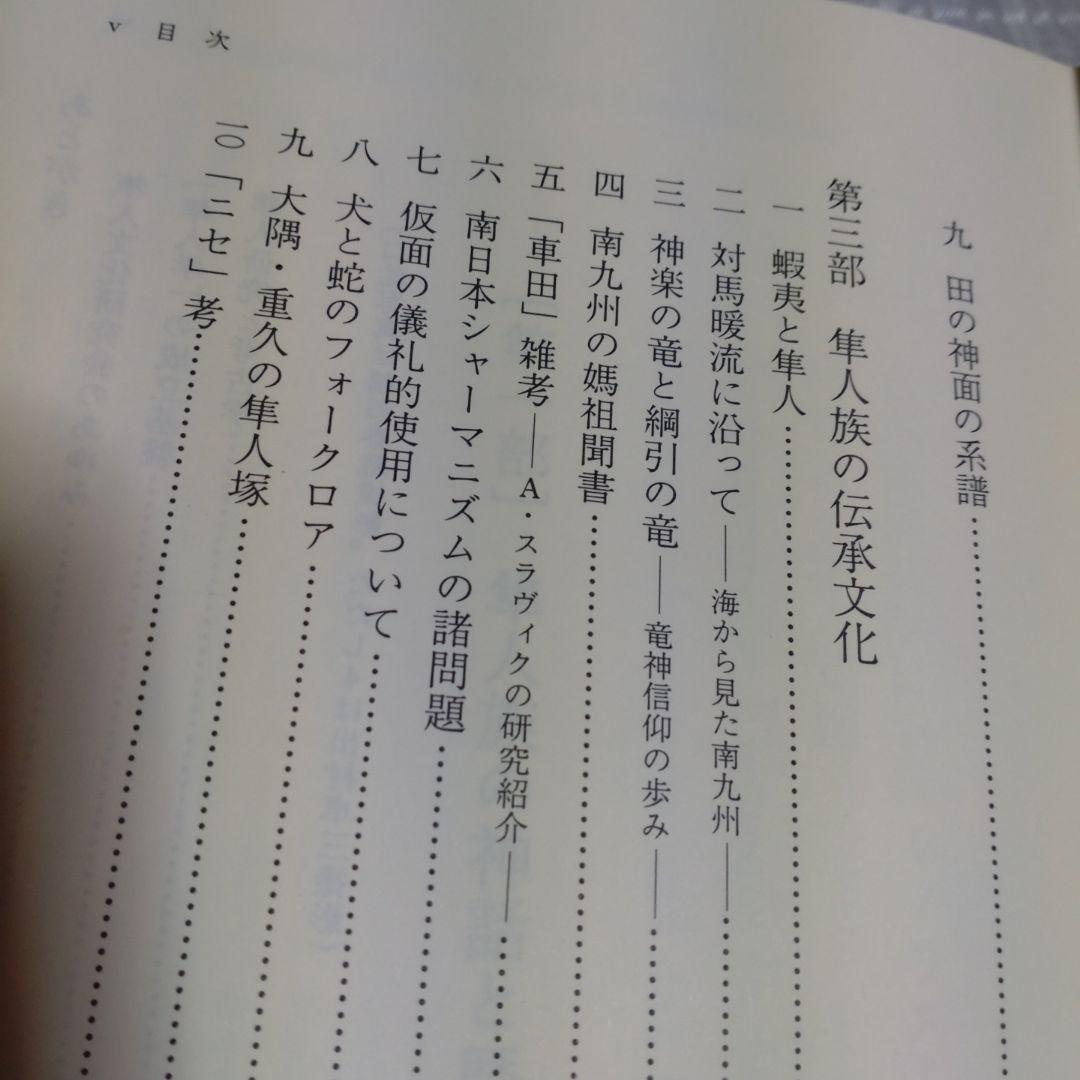 v 目次
九 田の神面の系譜
第三部 隼人族の伝承文化
一 蝦夷と隼人
二 対馬暖流に沿って──海から見た南九州──
三 神楽の竜と綱引の竜──竜神信仰の歩み──
四 南九州の媽祖聞書
五 「車田」雑考──A・スラヴィクの研究紹介──
六 南日本シャーマニズムの諸問題
七 仮面の儀礼的使用について
八 犬と蛇のフォークロア
九 大隅・重久の隼人塚
一〇 「ニセ」考